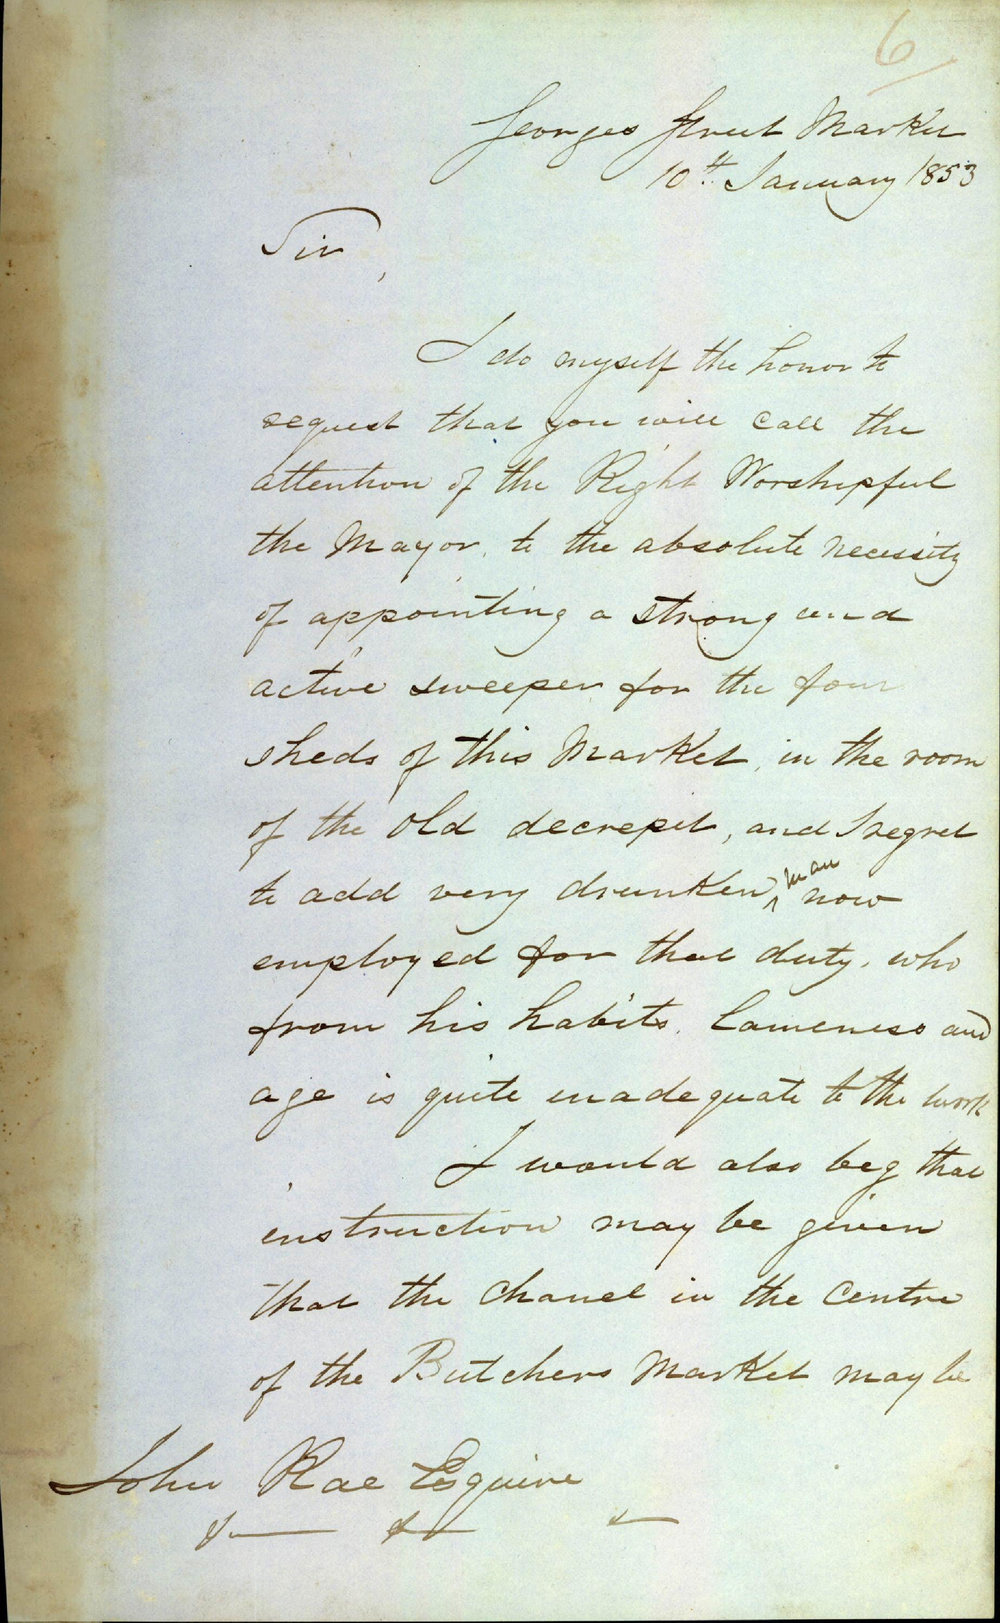 6
Georges Street Market
10th January 1853
Sir,
I do myself the honor to
request that you will call the
attention of the Right Worshipful
the Mayor, to the absolute necessity
of appointing a strong and
active sweeper for the four
sheds of this Market, in the room
of the old decrepit, and I regret
to add very drunken man now
employed for that duty, who
from his habits, lameness and
age is quite inadequate to the work
I would also beg that
instruction may be given
that the chanel in the centre
of the Butchers Market may be
John Rae Esquire